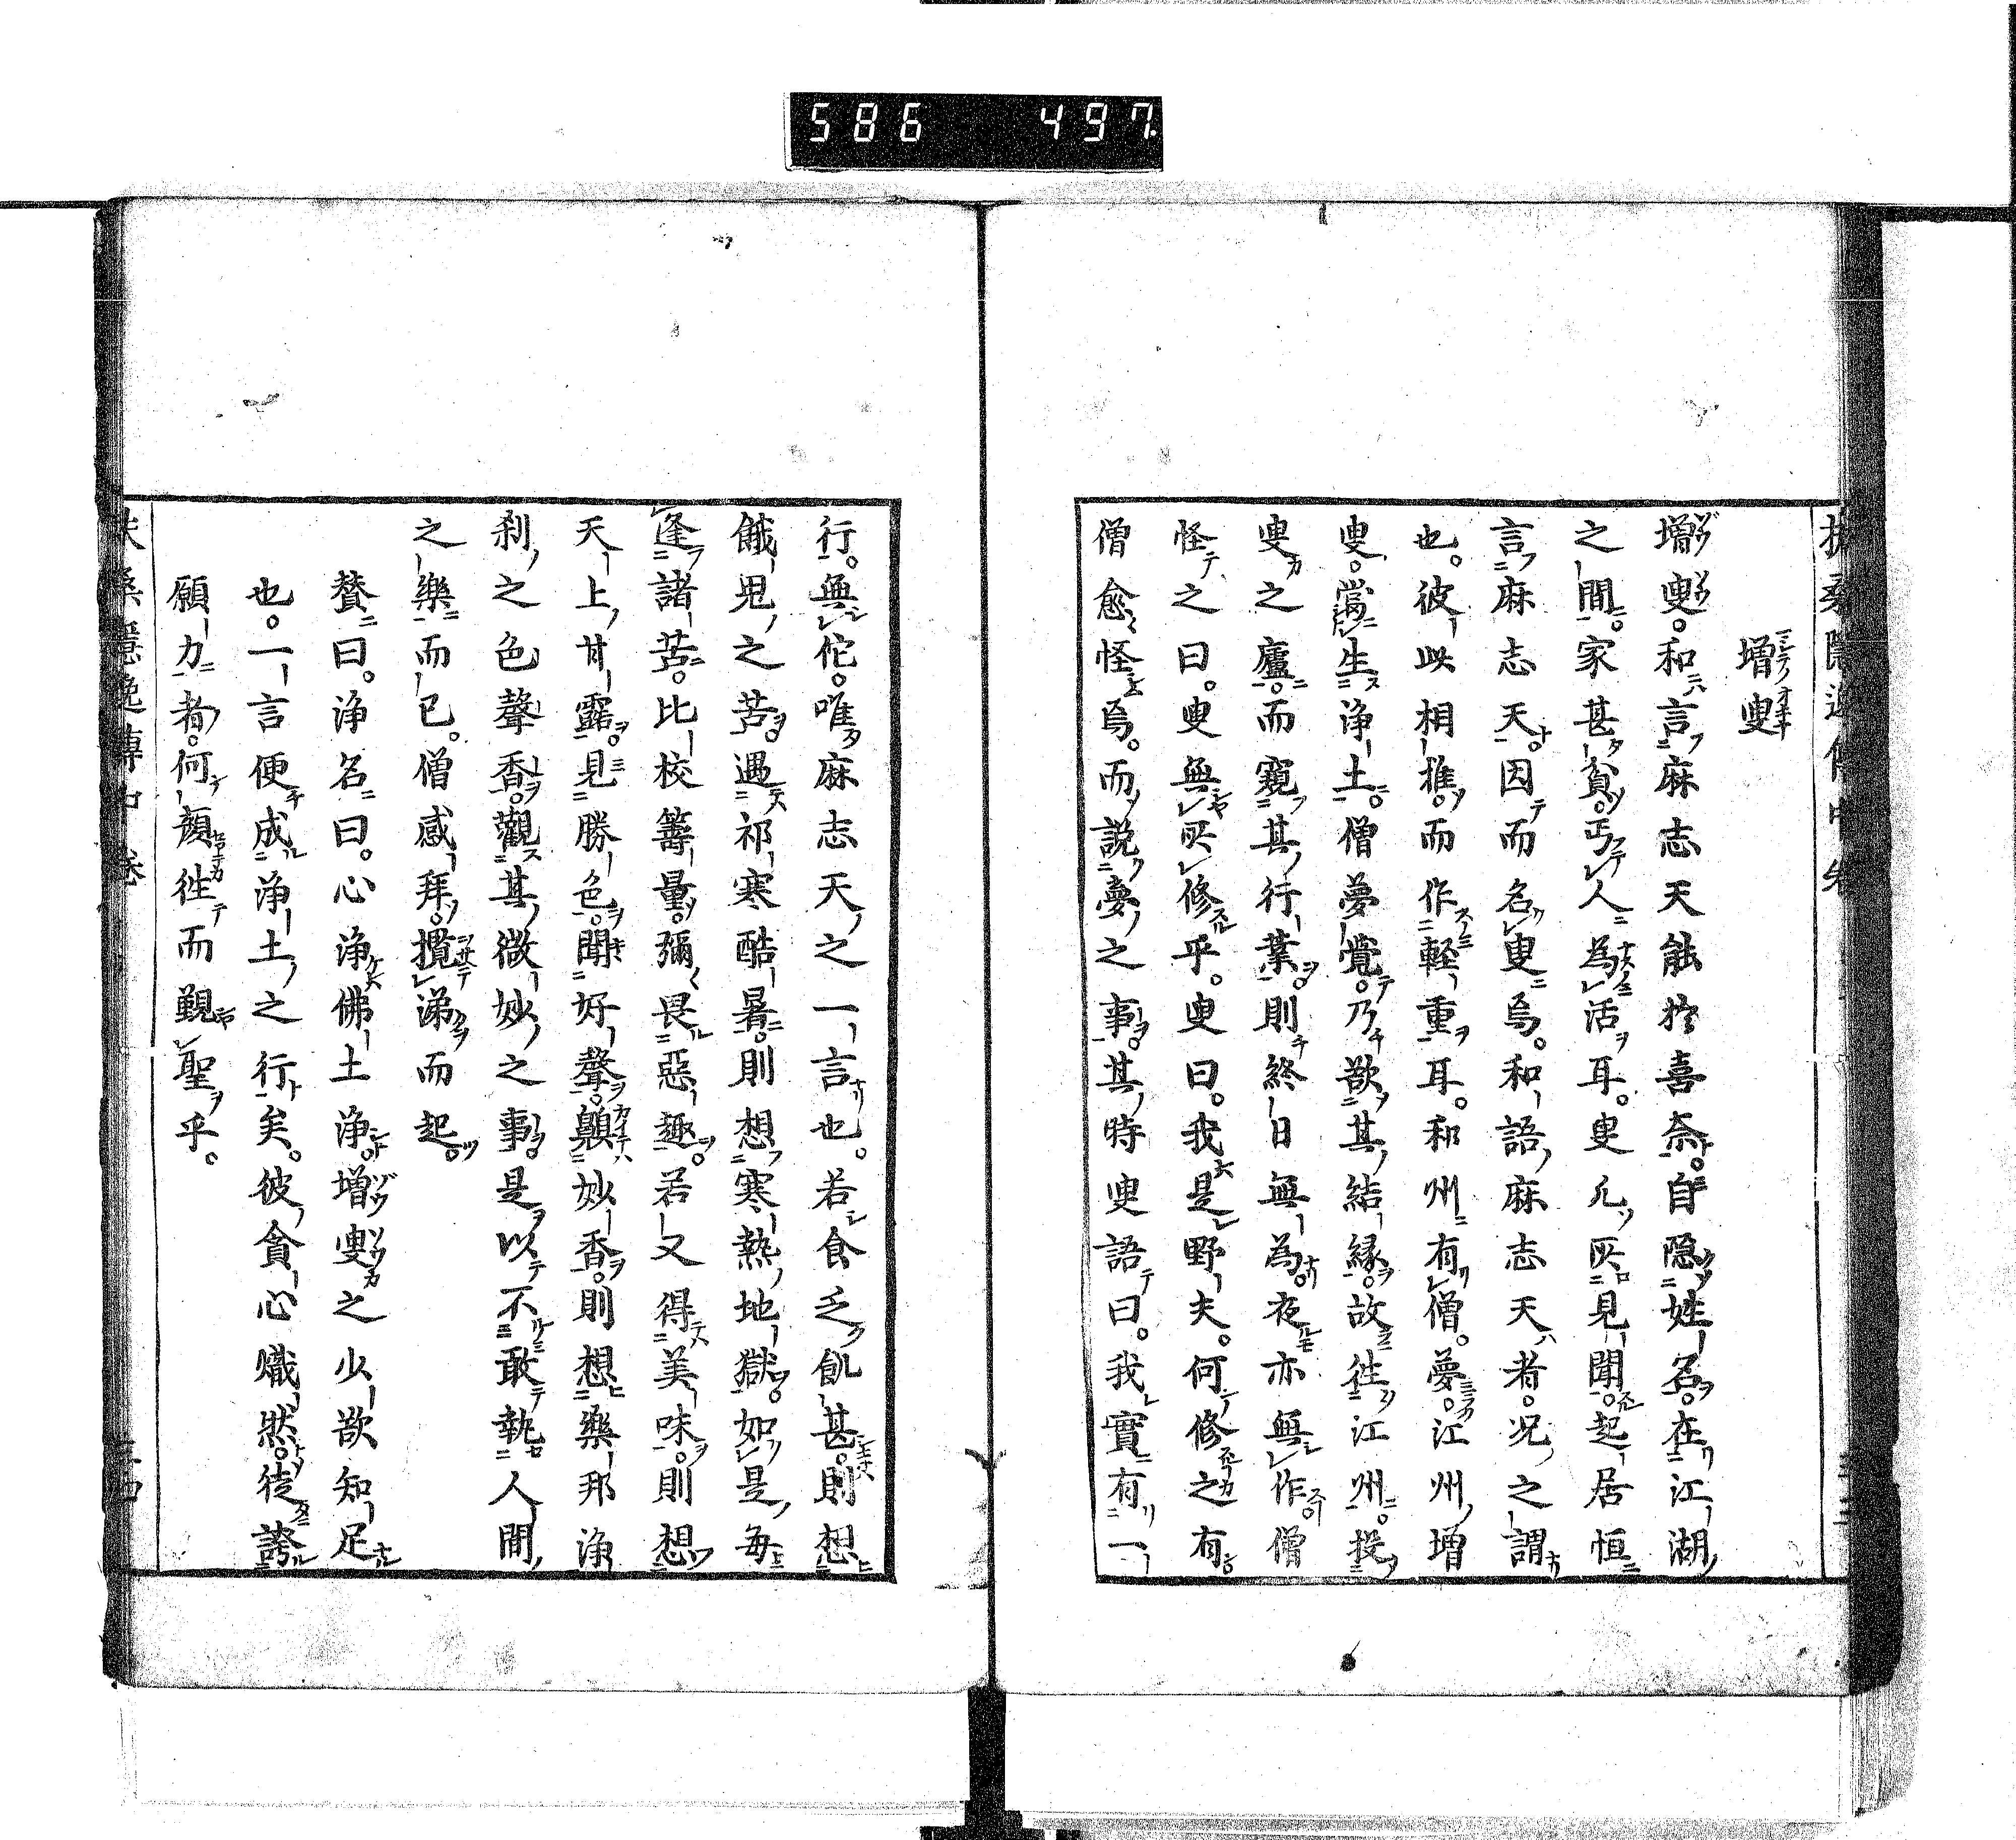 586 497
増叟
増叟。和言麻志天能於喜奈。自隠姓名。在江湖
之間。家甚貧。丐人為活耳。叟凡所見聞。起居恒
言麻志天。因而名叟焉。和語麻志天者。况之謂
也。彼此相推。而作輕重耳。和州有僧。夢。江州増
叟。當生浄土。僧夢覺。乃欲其結縁。故徃江州。投
叟之廬。而窺其行業。則終日無為。夜亦無作。僧
怪之曰。叟無所修乎。叟曰。我是野夫。何修之有。
僧愈怪焉。而說夢之事。其時叟語曰。我實有一
行。無佗。唯麻志天之一言也。若食乏飢甚。則想
餓鬼之苦。遇祁寒酷暑。則想寒熱地獄。如是毎
逢諸苦。比校籌量。彌畏惡趣。若又得美味。則想
天上甘露。見勝色。聞好聲。齅妙香。則想樂邦浄
刹之色聲香。觀其微妙之事。是以不敢執人間
之樂而已。僧感拜。攬涕而起。
賛曰。浄名曰。心浄佛土浄。増叟之少欲知足
也。一言便成浄土之行矣。彼貪心熾然。徒誇
願力者。何顔徃而覲聖乎。